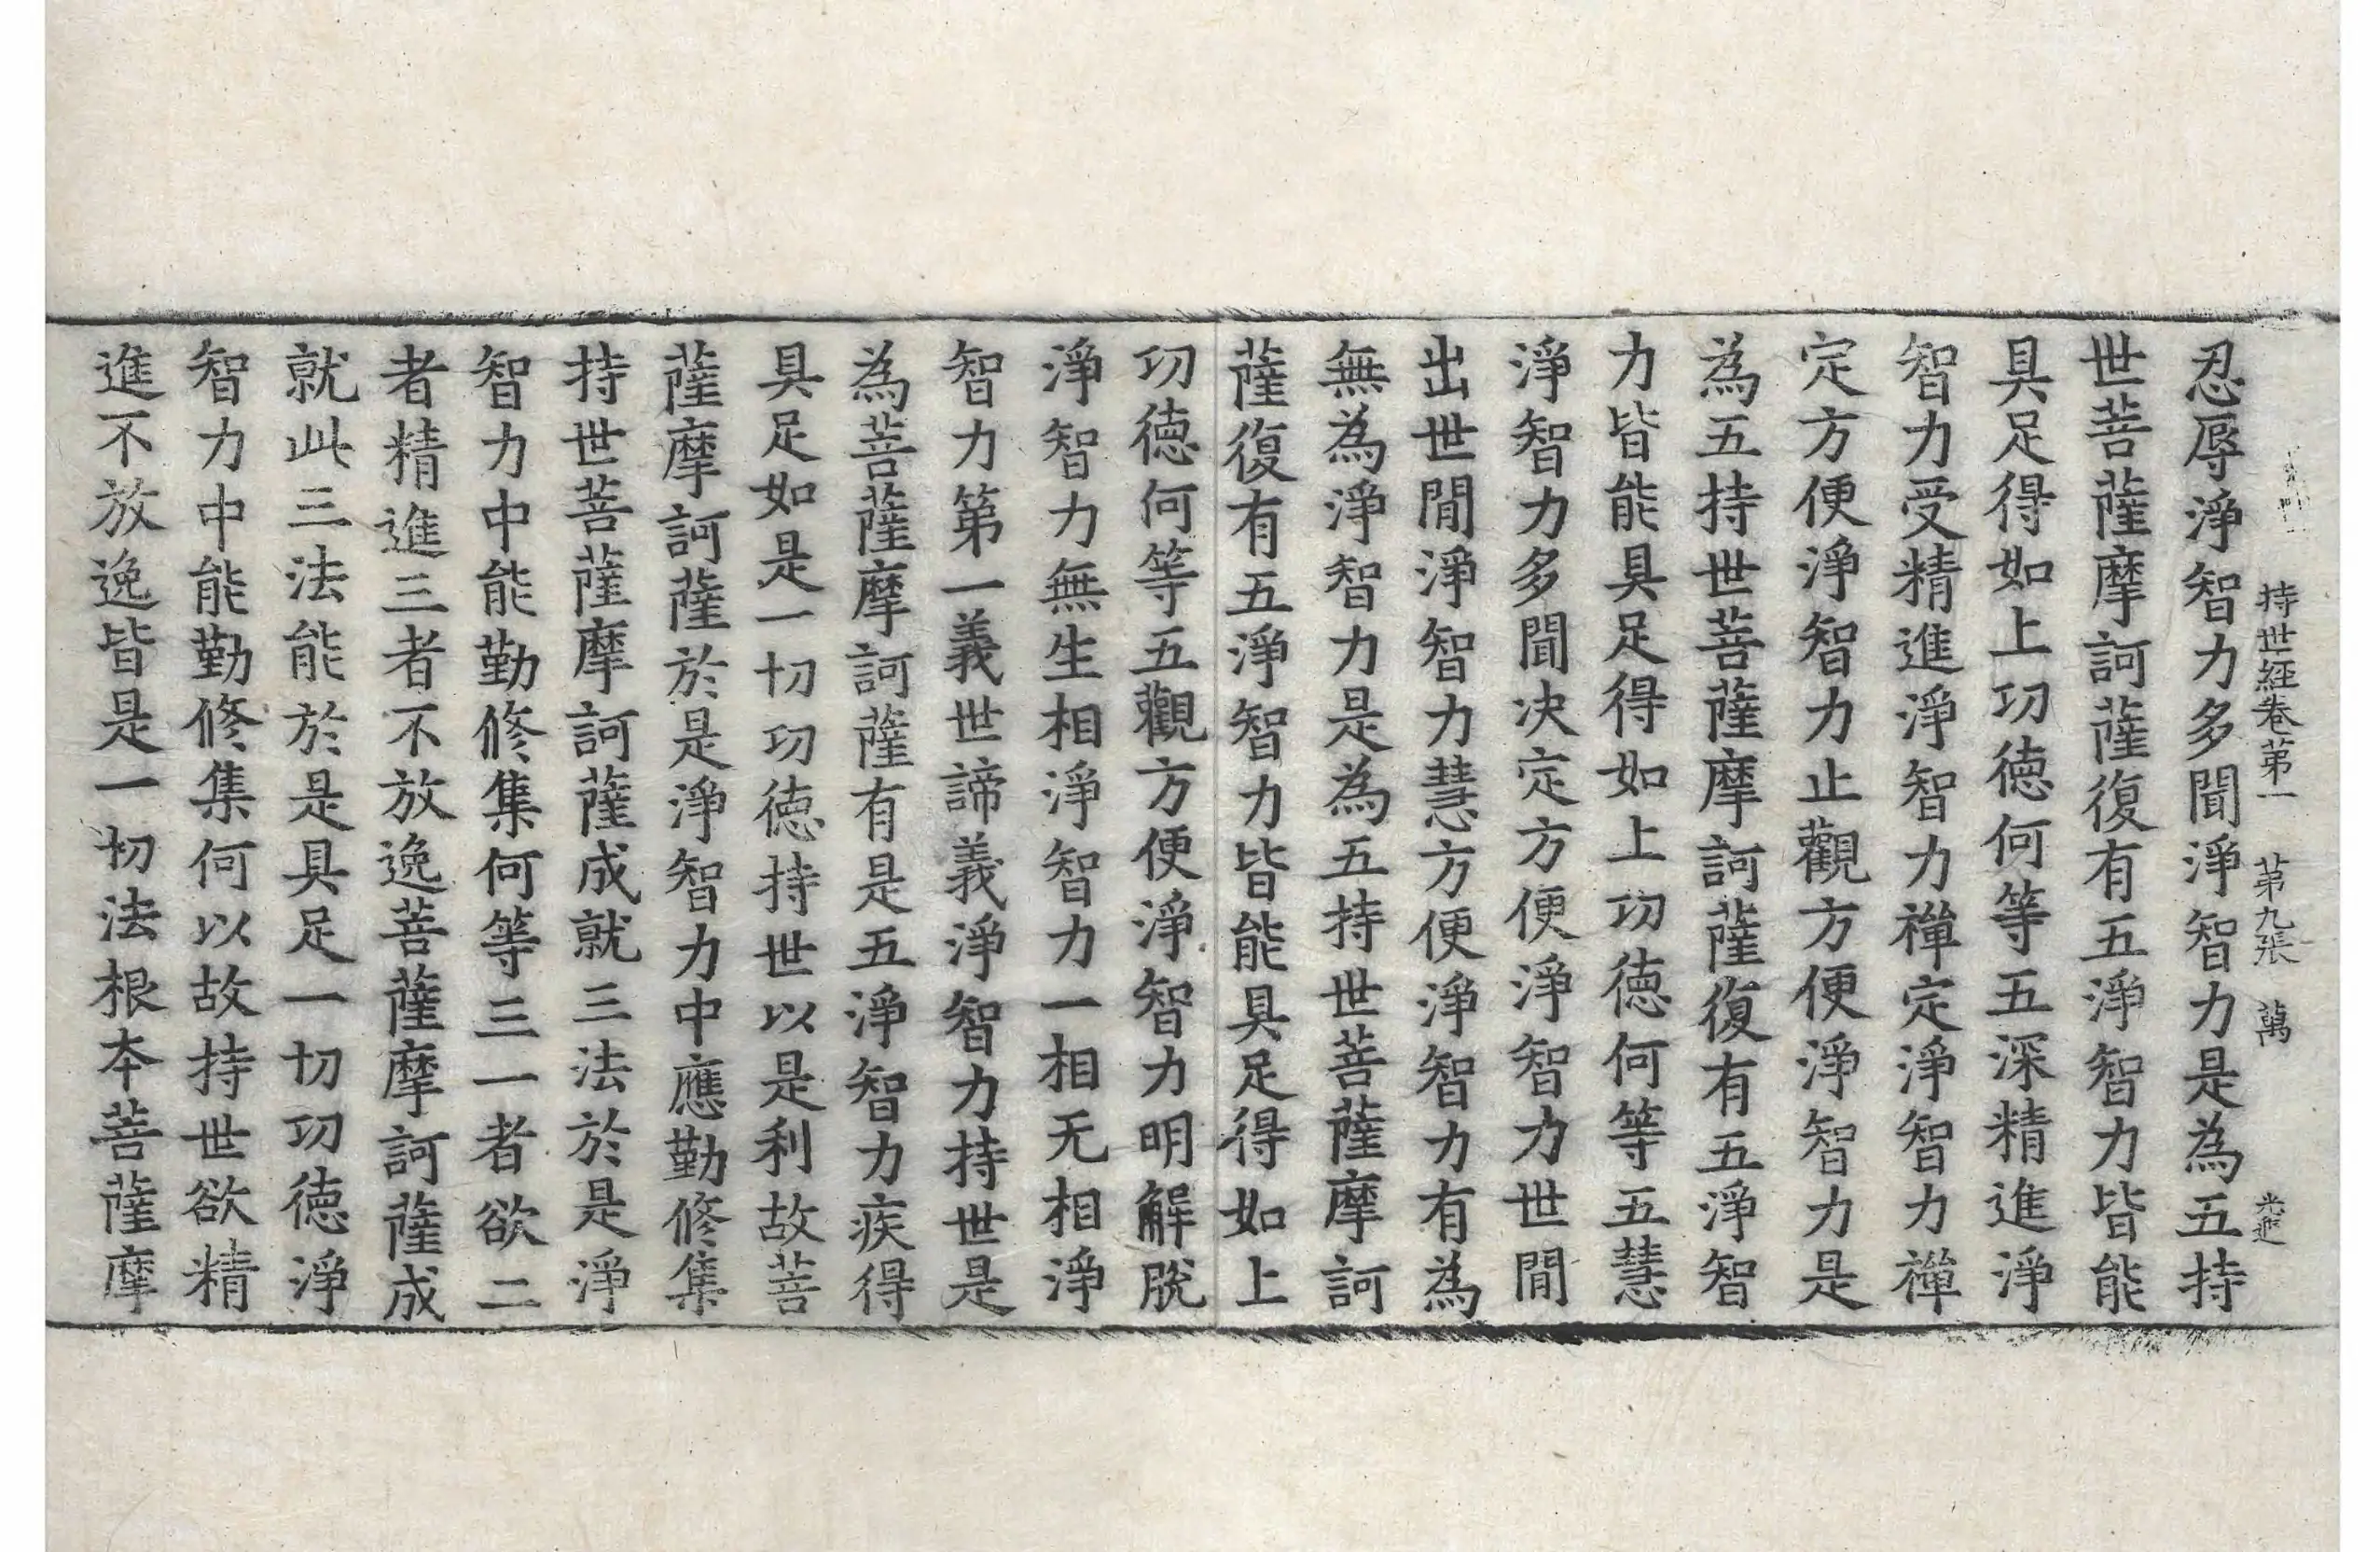 持世經卷第一 第九張 萬
忍辱淨智力多聞淨智力是為五持
世菩薩摩訶薩復有五淨智力皆能
具足得如上功徳何等五深精進淨
智力受精進淨智力禪定淨智力禪
定方便淨智力止觀方便淨智力是
為五持世菩薩摩訶薩復有五淨智
力皆能具足得如上功徳何等五慧
淨智力多聞决定方便淨智力世間
出世間淨智力慧方便淨智力有為
無為淨智力是為五持世菩薩摩訶
薩復有五淨智力皆能具足得如上
功徳何等五觀方便淨智力明解脫
淨智力無生相淨智力一相无相淨
智力第一義世諦義淨智力持世是
為菩薩摩訶薩有是五淨智力疾得
具足如是一切功徳持世以是利故菩
薩摩訶薩於是淨智力中應勤修集
持世菩薩摩訶薩成就三法於是淨
智力中能勤修集何等三一者欲二
者精進三者不放逸菩薩摩訶薩成
就此三法能於是具足一切功徳淨
智力中能勤修集何以故持世欲精
進不放逸皆是一切法根本菩薩摩